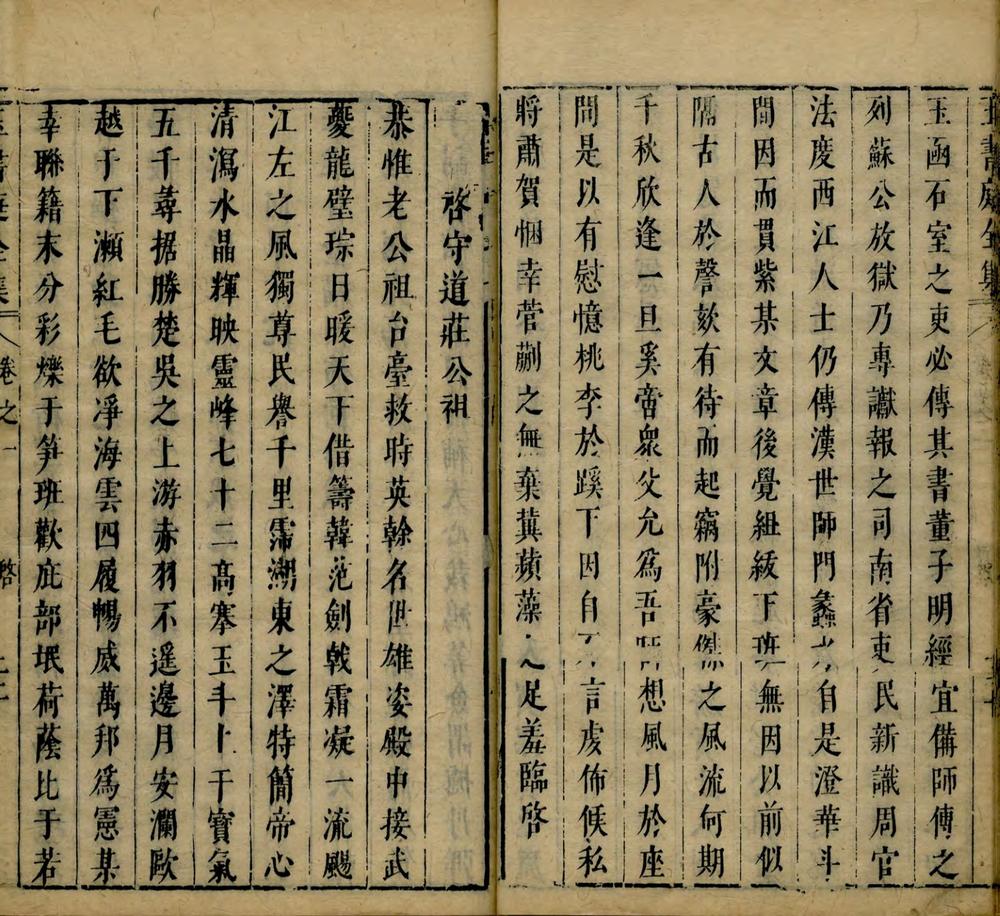 玉書庭全集
玉函石室之吏必傳其書董子明經宜備師傳之
列蘇公放獄乃專讞報之司南省吏民新識周官
法度西江人士仍傳漢世師門蠡 自是澄華斗
間因而貫紫某文章後覺紐綴下班無因以前似
隔古人於謦欬有待而起竊附豪傑之風流何期
千秋欣逢一旦奚啻眾父允爲吾 想風月於座
間是以有慰憶桃李於蹊下因自 言虔佈候私
將肅賀悃幸菅蒯之無棄冀蘋藻 足羞臨啓
啓守道莊公祖
恭惟老公祖台臺救時英幹名世雄姿殿中接武
夔龍璧琮日暖天下借籌韓范劍戟霜凝一流颺
江左之風獨尊民譽千里霈湖東之澤特簡帝心
清瀉水晶輝映靈峰七十二高搴玉斗上干寶氣
五千尋据勝楚吳之上游赤羽不遥邊月安瀾歐
越于下瀨紅毛欲凈海雲四履暢威萬邦爲憲某
幸聯籍末分彩爍于筍班歡庇部氓荷蔭比于若
玉書庭全集 卷之一 啓